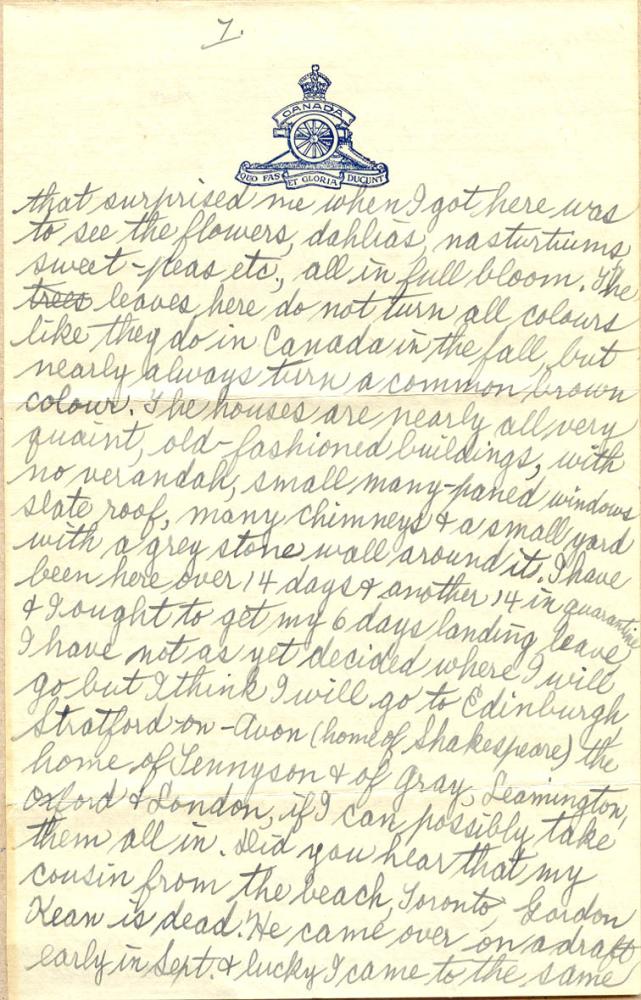 7.
CANADA
QUO FAS ET GLORIA DUCUNT
that surprised me when I got here was
to see the flowers, dahlias, nasturtiums,
sweet-peas etc., all in full bloom. The
trees leaves here do not turn all colours
like they do in Canada in the fall, but
nearly always turn a common brown
colour. The houses are nearly all very
quaint, old-fashioned buildings, with
no verandah, small many-paned windows
slate roof, many chimneys & a small yard
with a grey stone wall around it. I have
been here over 14 days & another 14 in quarantine
& I ought to get my 6 days landing leave
I have not as yet decided where I will
go but I think I will go to Edinburgh,
Stratford-on-Avon (home of Shakespeare) the
home of Tennyson & of Gray, Leamington,
Oxford & London, if I can possibly take
them all in. Did you hear that my
cousin from the beach, Toronto, Gordon
Kean is dead. He came over on a draft
early in Sept. & lucky I came to the same